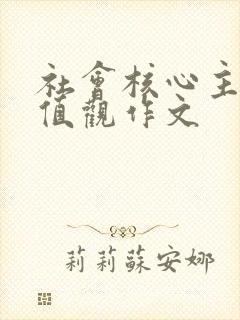 社會核心主
值觀作文
莉莉蘇安娜